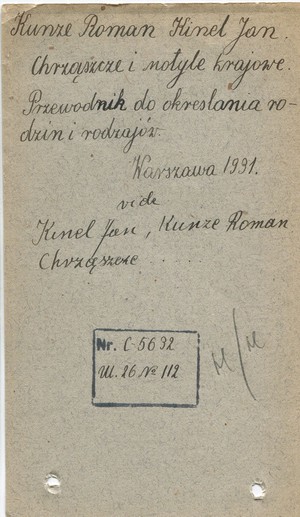 Kunze Roman Kinel Jan.
Chrząszcze i motyle krajowe.
Przewodnik do określania ro-
dzin i rodzajów.
Warszawa 1991.
vide
Kinel Jan, Kunze Roman
Chrząszcze . . . . .
Nr. C-5692
M/M